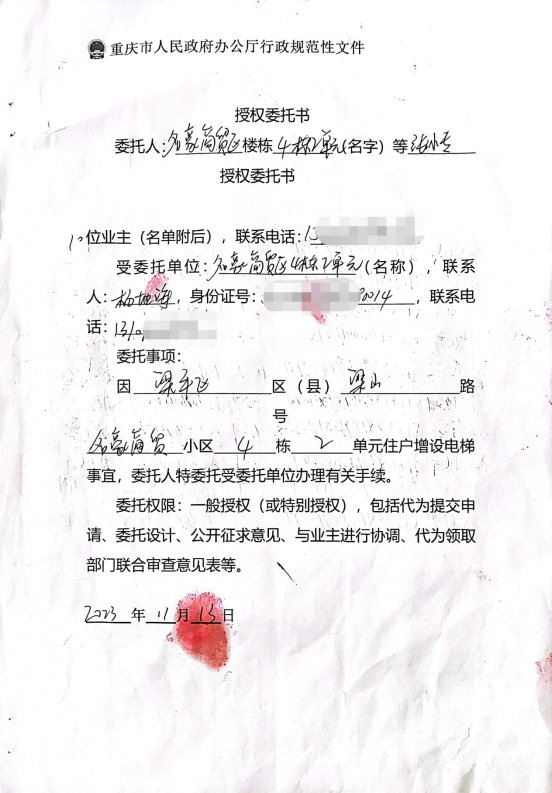 重庆市人民政府办公厅行政规范性文件
授权委托书
委托人:名豪商贸区楼栋4栋2单元(名字)等
授权委托书
10位业主(名单附后),联系电话:13
受委托单位:名豪商贸区4栋2单元(名称),联系
人:,身份证号:2014,联系电
话:131
委托事项:
因梁平区(县)梁山路
号
名豪商贸小区4栋2单元住户增设电梯
事宜,委托人特委托受委托单位办理有关手续。
委托权限:一般授权(或特别授权),包括代为提交申
请、委托设计、公开征求意见、与业主进行协调、代为领取
部门联合审查意见表等。
2023年11月13日